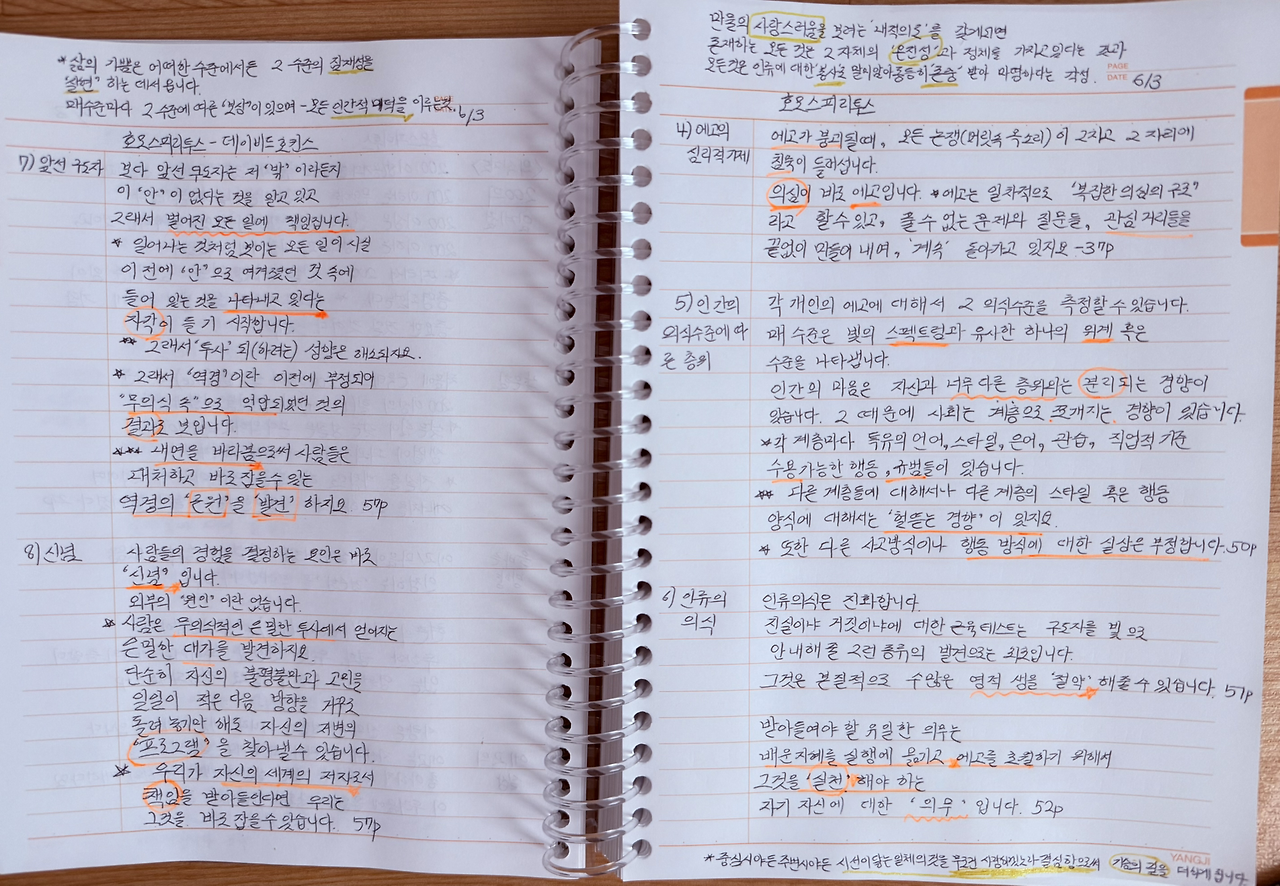 *삶의 기쁨은 어떠한 수준에서든 그 수준의 잠재성을
'실현' 하는 데서 옵니다.
매수준마다 그 수준에 따른 '보상'이 있으며 - 모든 인간적 미덕을 이루는것. 6/3
호모스피리투스 - 데이비드호킨스
7) 앞선 구도자
보다 앞선 구도자는 저 '밖' 이라든지
이 "안" 이 없다는 것을 알고 있고
그래서 벌어진 모든 일에 책임집니다.
* 일어나는 것처럼 보이는 모든 일이 사실
이 전에 '안' 으로 여겨졌던 것 속에
들어 있는 것을 나타내고 있다는
자각이 들기 시작합니다.
** 그래서 '투사' 되(하려는) 성향은 해소되지요.
* 그래서 '역경' 이란 이전에 부정되어
"무의식 속" 으로 억압되었던 것의
결과로 보입니다.
*** 내면을 바라봄으로써 사람들은
대처하고 바로 잡을 수 있는
역경의 '근원' 을 '발견' 하지요. 57p
8) 신념
사람들의 경험을 결정하는 요인은 바로
"신념" 입니다.
외부의 '원인' 이란 없습니다.
* 사람은 무의식적인 은밀한 투사에서 얻어지는
은밀한 대가를 발견하지요.
단순히 자신의 불평불만과 고민을
일일이 적은 다음 방향을 거꾸로
돌려 놓기만 해도 자신의 저변의
"프로그램" 을 찾아낼 수 있습니다.
* 우리가 자신의 세계의 저자로서
책임을 받아들인다면 우리는
그것을 바로 잡을 수 있습니다. 57p
만물의 사랑스러움을 보려는 '내적의도' 를 갖게되면
존재하는 모든 것은 그 자체의 '온전성' 과 정체를 가지고 있다는 것과
모든것은 인류에 대한 '봉사로 말미암아 동등히 존중' 받아 마땅하다는 각성.
PAGE
DATE 6/3
호모스피리투스
4) 에고의
심리적 기제
에고가 붕괴될때, 모든 논쟁(머릿속 목소리) 이 그치고 그 자리에
침묵이 들어섭니다.
의심이 바로 에고입니다. *에고는 일차적으로 "복잡한 의심의 구조"
라고 할 수 있고, 풀 수 없는 문제와 질문들, 관심 거리들을
끝없이 만들어 내며, '계속' 돌아가고 있지요 -37p
5) 인간의
의식수준에 따
른 층위
각 개인의 에고에 대해서 그 의식수준을 측정할 수 있습니다.
매 수준은 빛의 스펙트럼과 유사한 하나의 위계 혹은
수준을 나타냅니다.
인간의 마음은 자신과 너무 다른 층위와는 분리되는 경향이
있습니다. 그 때문에 사회는 계층으로 쪼개지는 경향이 있습니다.
*각 계층마다 독유의 언어, 스타일, 은어, 관습, 직업적 기준
수용가능한 행동, 규범들이 있습니다.
** 다른 계층들에 대해서나 다른 계층의 스타일 혹은 행동
양식에 대해서는 '헐뜯는 경향' 이 있지요.
* 또한 다른 사고방식이나 행동 방식에 대한 실상은 부정합니다. 50p
6) 인류의
의식
인류의식은 진화합니다.
진실이냐 거짓이냐에 대한 근육테스트는 구도자를 빛으로
안내해 줄 그런 종류의 발견으로는 최초입니다.
그것은 본질적으로 수많은 영적 생을 '절약' 해 줄 수 있습니다. 51p
받아들여야 할 유일한 의무는
배운지혜를 실행에 옮기고, 에고를 초월하기 위해서
그것을 '실천' 해야 하는
자기 자신에 대한 '의무' 입니다. 52p
* 중심시야든 주변시야든 시선이 닿는 일체의 것을 무조건 사랑하겠노라 결심함으로써 가슴의 길을 더하게 됩니다
YANGJI